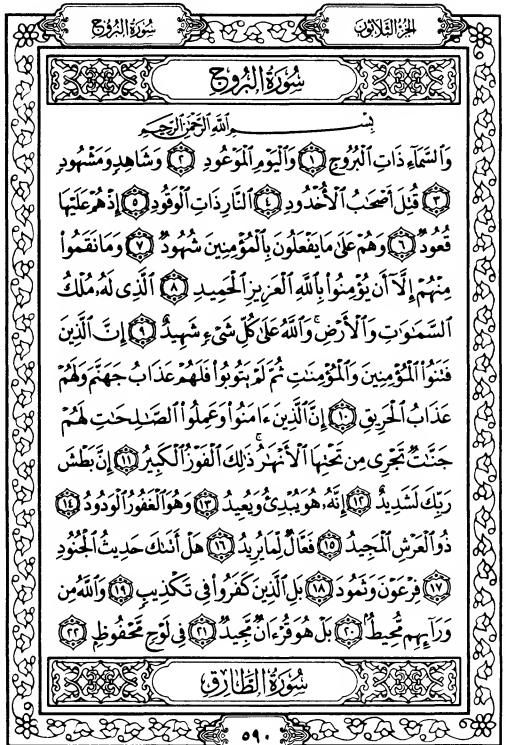 الجزء الثلاثون
سورة البروج
سُورَةُ البُرُوج
بِسْمِ اللَّهِ الرَّحْمَٰنِ الرَّحِيمِ
وَالسَّمَاءِ ذَاتِ الْبُرُوجِ ١ وَالْيَوْمِ الْمَوْعُودِ ٢ وَشَاهِدٍ وَمَشْهُودٍ
٣ قُتِلَ أَصْحَٰبُ الْأُخْدُودِ ٤ النَّارِ ذَاتِ الْوَقُودِ ٥ إِذْ هُمْ عَلَيْهَا
قُعُودٌ ٦ وَهُمْ عَلَىٰ مَا يَفْعَلُونَ بِالْمُؤْمِنِينَ شُهُودٌ ٧ وَمَا نَقَمُوا
مِنْهُمْ إِلَّا أَن يُؤْمِنُوا بِاللَّهِ الْعَزِيزِ الْحَمِيدِ ٨ الَّذِي لَهُ مُلْكُ
السَّمَٰوَٰتِ وَالْأَرْضِ ۚ وَاللَّهُ عَلَىٰ كُلِّ شَيْءٍ شَهِيدٌ ٩ إِنَّ الَّذِينَ
فَتَنُوا الْمُؤْمِنِينَ وَالْمُؤْمِنَٰتِ ثُمَّ لَمْ يَتُوبُوا فَلَهُمْ عَذَابُ جَهَنَّمَ وَلَهُمْ
عَذَابُ الْحَرِيقِ ١٠ إِنَّ الَّذِينَ ءَامَنُوا وَعَمِلُوا الصَّٰلِحَٰتِ لَهُمْ
جَنَّٰتٌ تَجْرِي مِن تَحْتِهَا الْأَنْهَٰرُ ۚ ذَٰلِكَ الْفَوْزُ الْكَبِيرُ ١١ إِنَّ بَطْشَ
رَبِّكَ لَشَدِيدٌ ١٢ إِنَّهُ هُوَ يُبْدِئُ وَيُعِيدُ ١٣ وَهُوَ الْغَفُورُ الْوَدُودُ ١٤
ذُو الْعَرْشِ الْمَجِيدُ ١٥ فَعَّالٌ لِّمَا يُرِيدُ ١٦ هَلْ أَتَىٰكَ حَدِيثُ الْجُنُودِ
١٧ فِرْعَوْنَ وَثَمُودَ ١٨ بَلِ الَّذِينَ كَفَرُوا فِي تَكْذِيبٍ ١٩ وَاللَّهُ مِن
وَرَائِهِم مُّحِيطٌ ٢٠ بَلْ هُوَ قُرْءَانٌ مَّجِيدٌ ٢١ فِي لَوْحٍ مَّحْفُوظٍ ٢٢
سُورَةُ الطَّارِقِ
٥٩٠